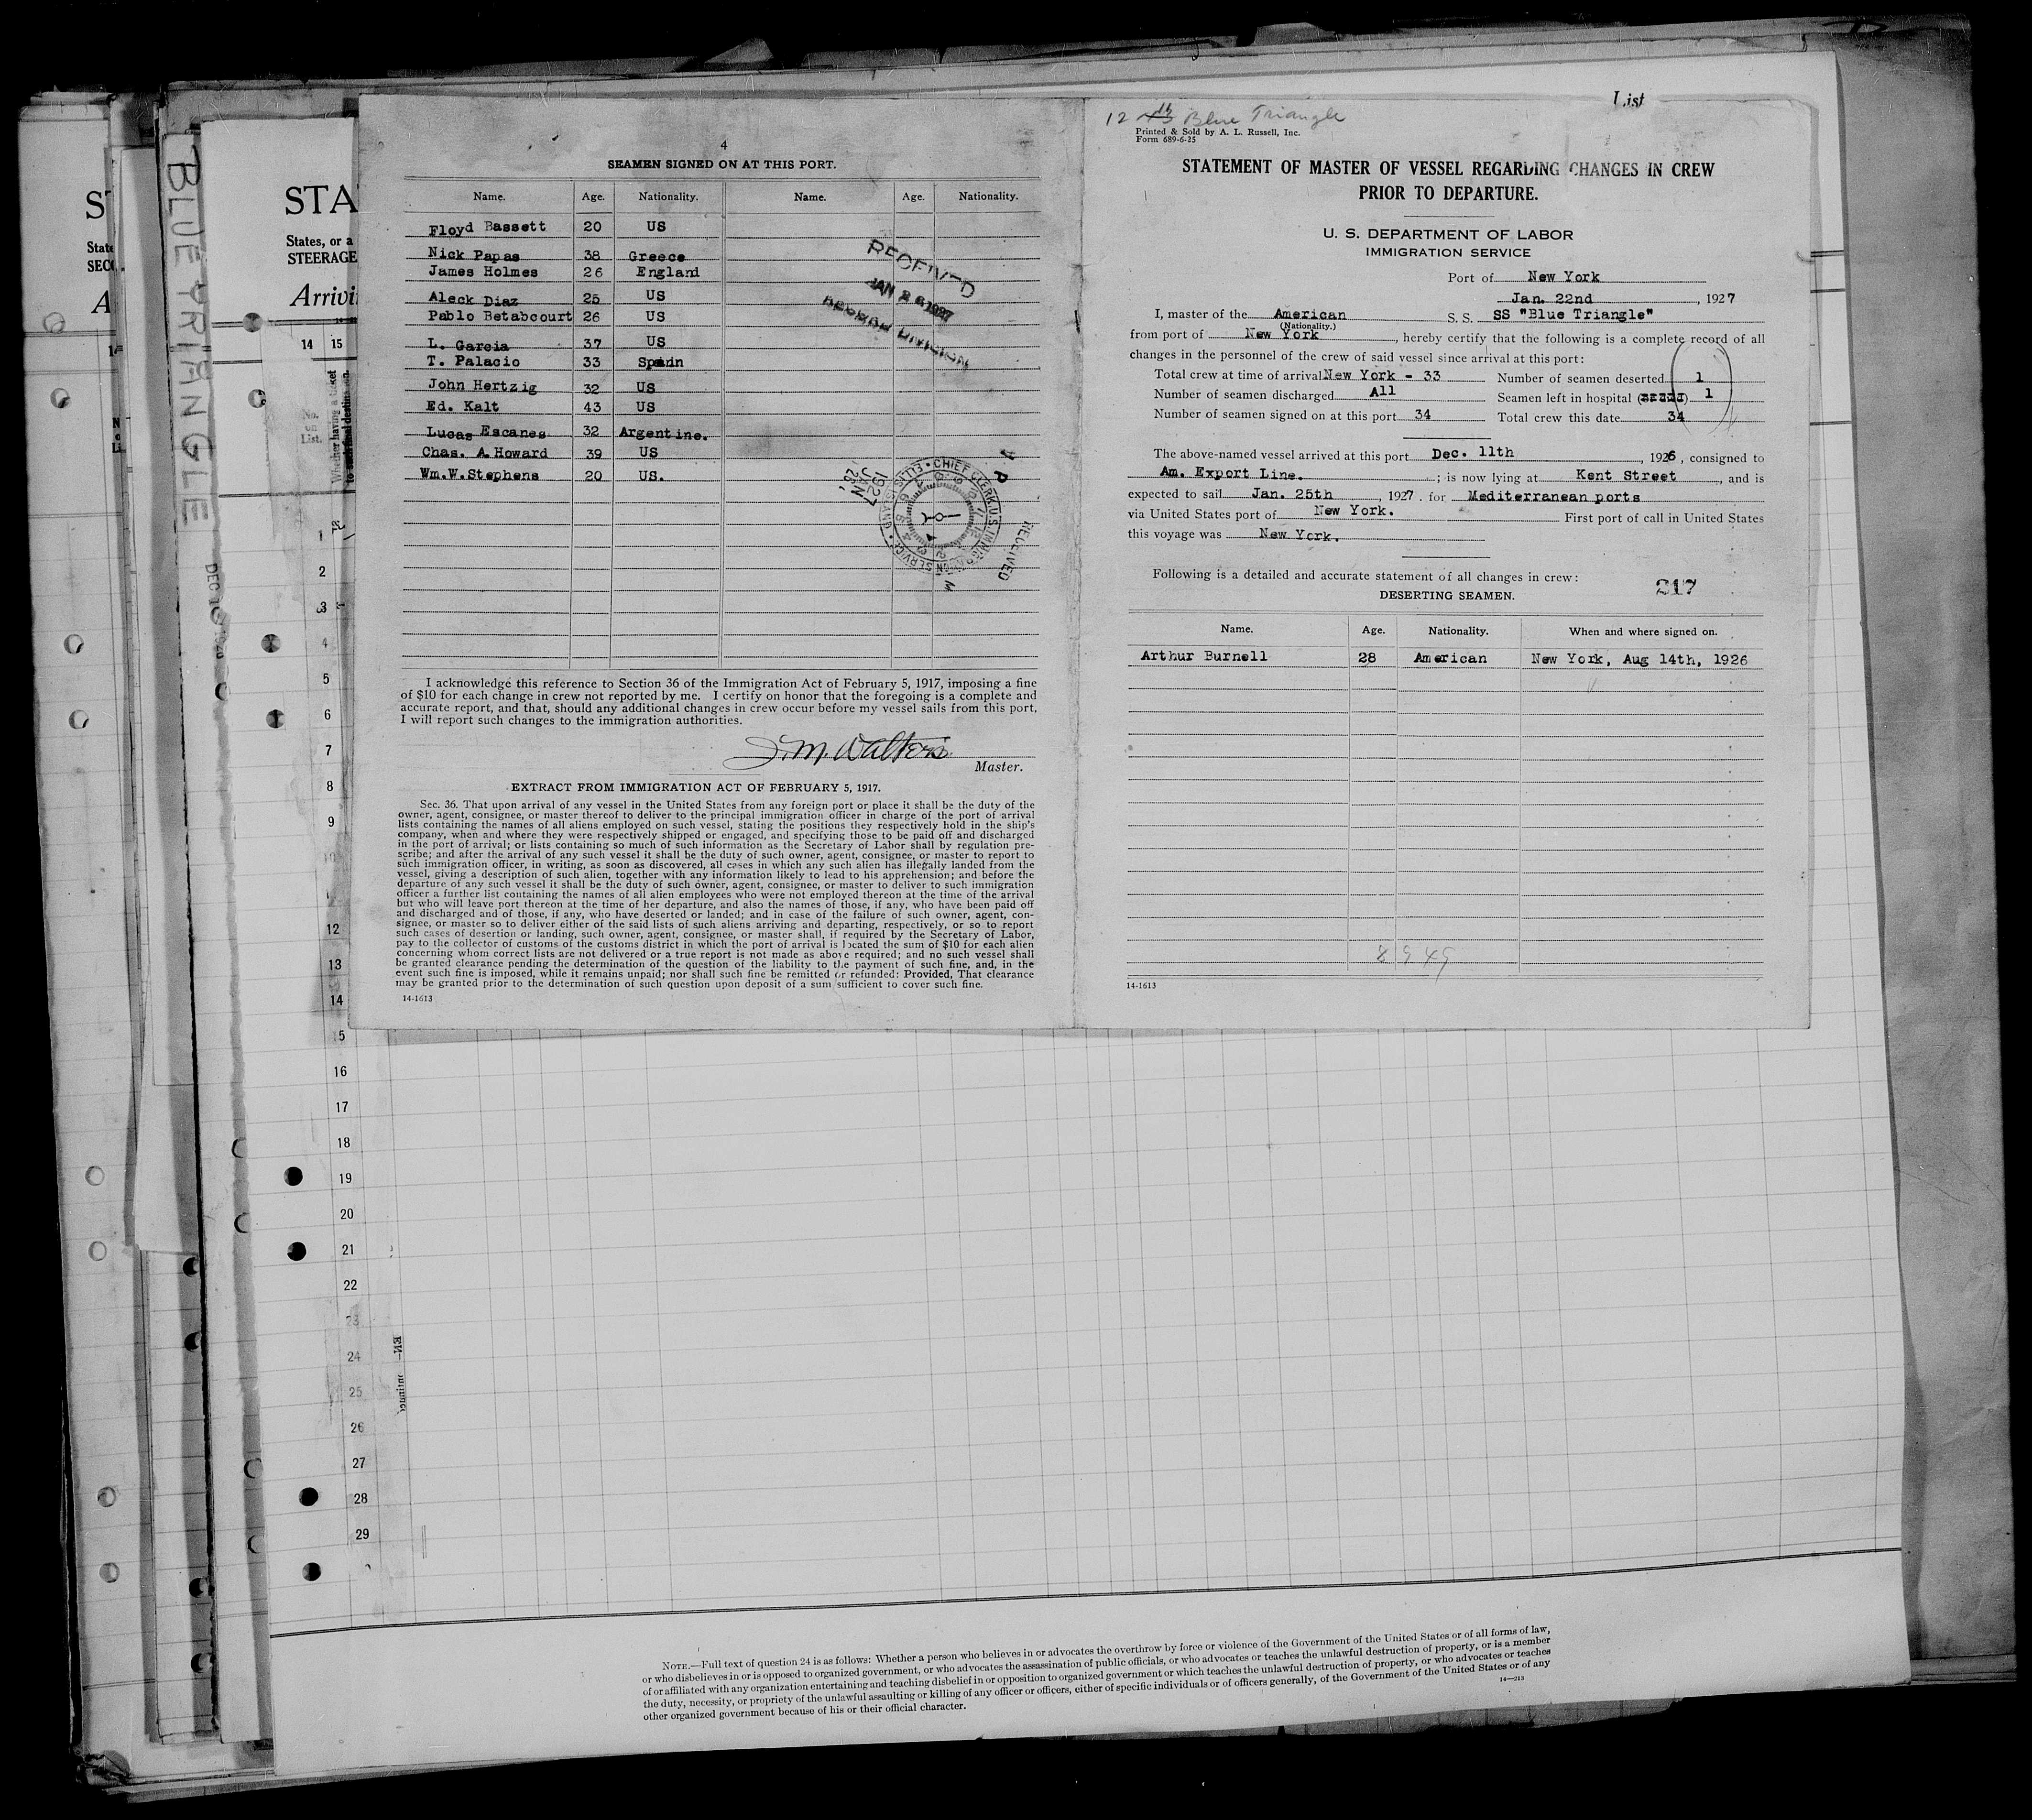 List
BLUE TRIANGLE
DEC
STA
States, or a
STEERAGE
Arrivi
14 15
No. on List.
Whether having a ticket
to such final destination.
1
2
3
4
5
6
7
8
9
12
13
14
15
16
17
18
19
20
21
22
23
24
25
26
27
28
29
4
SEAMEN SIGNED ON AT THIS PORT.
Name. Age. Nationality. Name. Age. Nationality.
Floyd Bassett 20 US
Nick Papas 38 Greece
James Holmes 26 England
Aleck Diaz 25 US
Pablo Betabcourt 26 US
L. Garcia 37 US
T. Palacio 33 Spain
John Hertzig 32 US
Ed. Kalt 43 US
Lucas Escanes 32 Argentine.
Chas. A. Howard 39 US
Wm.W.Stephens 20 US.
RECEIVED
JAN 26 1927
RECORD DIVISION
CHIEF CLERK U.S. IMMIGRATION SERVICE • ELLIS ISLAND •
1927 JAN 26
RECEIVED
I acknowledge this reference to Section 36 of the Immigration Act of February 5, 1917, imposing a fine
of $10 for each change in crew not reported by me. I certify on honor that the foregoing is a complete and
accurate report, and that, should any additional changes in crew occur before my vessel sails from this port,
I will report such changes to the immigration authorities.
J. M. Walters
Master.
EXTRACT FROM IMMIGRATION ACT OF FEBRUARY 5, 1917.
Sec. 36. That upon arrival of any vessel in the United States from any foreign port or place it shall be the duty of the
owner, agent, consignee, or master thereof to deliver to the principal immigration officer in charge of the port of arrival
lists containing the names of all aliens employed on such vessel, stating the positions they respectively hold in the ship's
company, when and where they were respectively shipped or engaged, and specifying those to be paid off and discharged
in the port of arrival; or lists containing so much of such information as the Secretary of Labor shall by regulation pre-
scribe; and after the arrival of any such vessel it shall be the duty of such owner, agent, consignee, or master to report to
such immigration officer, in writing, as soon as discovered, all cases in which any such alien has illegally landed from the
vessel, giving a description of such alien, together with any information likely to lead to his apprehension; and before the
departure of any such vessel it shall be the duty of such owner, agent, consignee, or master to deliver to such immigration
officer a further list containing the names of all alien employees who were not employed thereon at the time of the arrival
but who will leave port thereon at the time of her departure, and also the names of those, if any, who have been paid off
and discharged and of those, if any, who have deserted or landed; and in case of the failure of such owner, agent, con-
signee, or master so to deliver either of the said lists of such aliens arriving and departing, respectively, or so to report
such cases of desertion or landing, such owner, agent, consignee, or master shall, if required by the Secretary of Labor,
pay to the collector of customs of the customs district in which the port of arrival is located the sum of $10 for each alien
concerning whom correct lists are not delivered or a true report is not made as above required; and no such vessel shall
be granted clearance pending the determination of the question of the liability to the payment of such fine, and, in the
event such fine is imposed, while it remains unpaid; nor shall such fine be remitted or refunded: Provided, That clearance
may be granted prior to the determination of such question upon deposit of a sum sufficient to cover such fine.
14-1613
12 Blue Triangle
Printed & Sold by A. L. Russell, Inc.
Form 689-6-25
STATEMENT OF MASTER OF VESSEL REGARDING CHANGES IN CREW
PRIOR TO DEPARTURE.
U. S. DEPARTMENT OF LABOR
IMMIGRATION SERVICE
Port of New York
Jan. 22nd, 1927
I, master of the American S. S. SS "Blue Triangle"
(Nationality.)
from port of New York, hereby certify that the following is a complete record of all
changes in the personnel of the crew of said vessel since arrival at this port:
Total crew at time of arrival New York - 33 Number of seamen deserted 1
Number of seamen discharged All Seamen left in hospital 1
Number of seamen signed on at this port 34 Total crew this date 34
The above-named vessel arrived at this port Dec. 11th, 1926, consigned to
Am. Export Line.; is now lying at Kent Street, and is
expected to sail Jan. 25th, 1927. for Mediterranean ports
via United States port of New York. First port of call in United States
this voyage was New York.
Following is a detailed and accurate statement of all changes in crew:
217
DESERTING SEAMEN.
Name. Age. Nationality. When and where signed on.
Arthur Burnell 28 American New York, Aug 14th, 1926
14-1613
NOTE.—Full text of question 24 is as follows: Whether a person who believes in or advocates the overthrow by force or violence of the Government of the United States or of all forms of law,
or who disbelieves in or is opposed to organized government, or who advocates the assassination of public officials, or who advocates or teaches the unlawful destruction of property, or is a member
of or affiliated with any organization entertaining and teaching disbelief in or opposition to organized government or which teaches the unlawful destruction of property, or who advocates or teaches
the duty, necessity, or propriety of the unlawful assaulting or killing of any officer or officers, either of specific individuals or of officers generally, of the Government of the United States or of any
other organized government because of his or their official character.
14—213